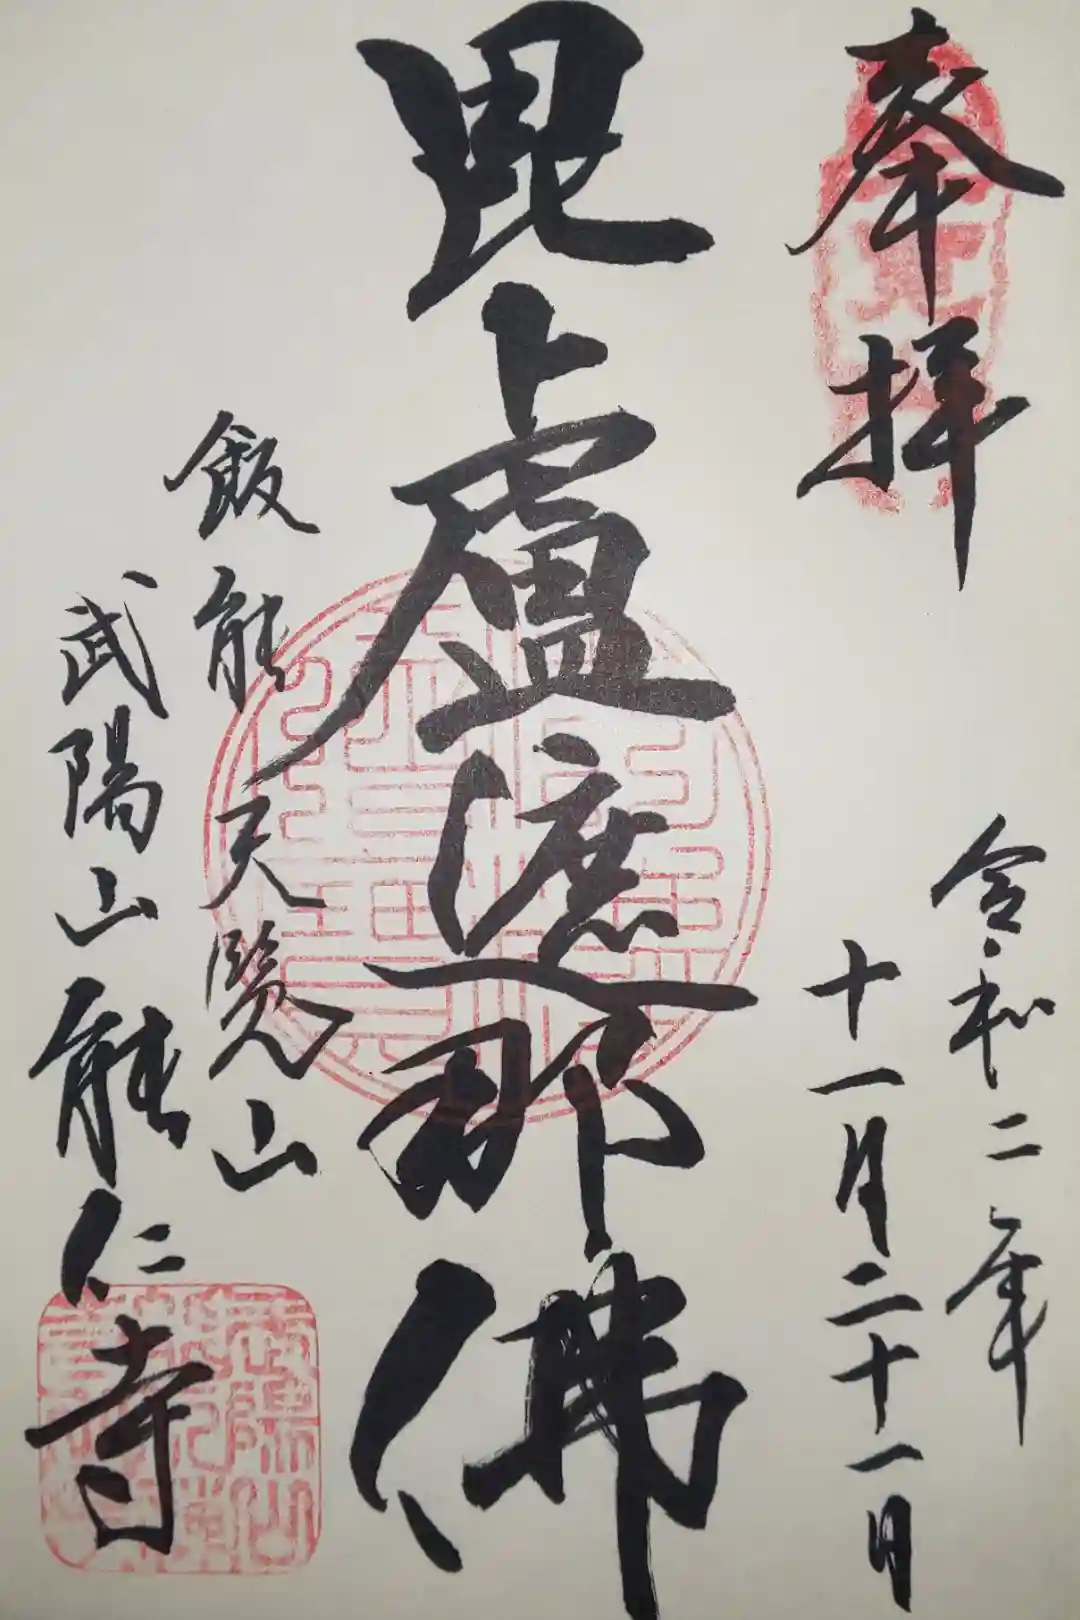 奉拝
令和二年
十一月二十一日
毘盧遮那佛
飯能天覧山
武陽山能仁寺